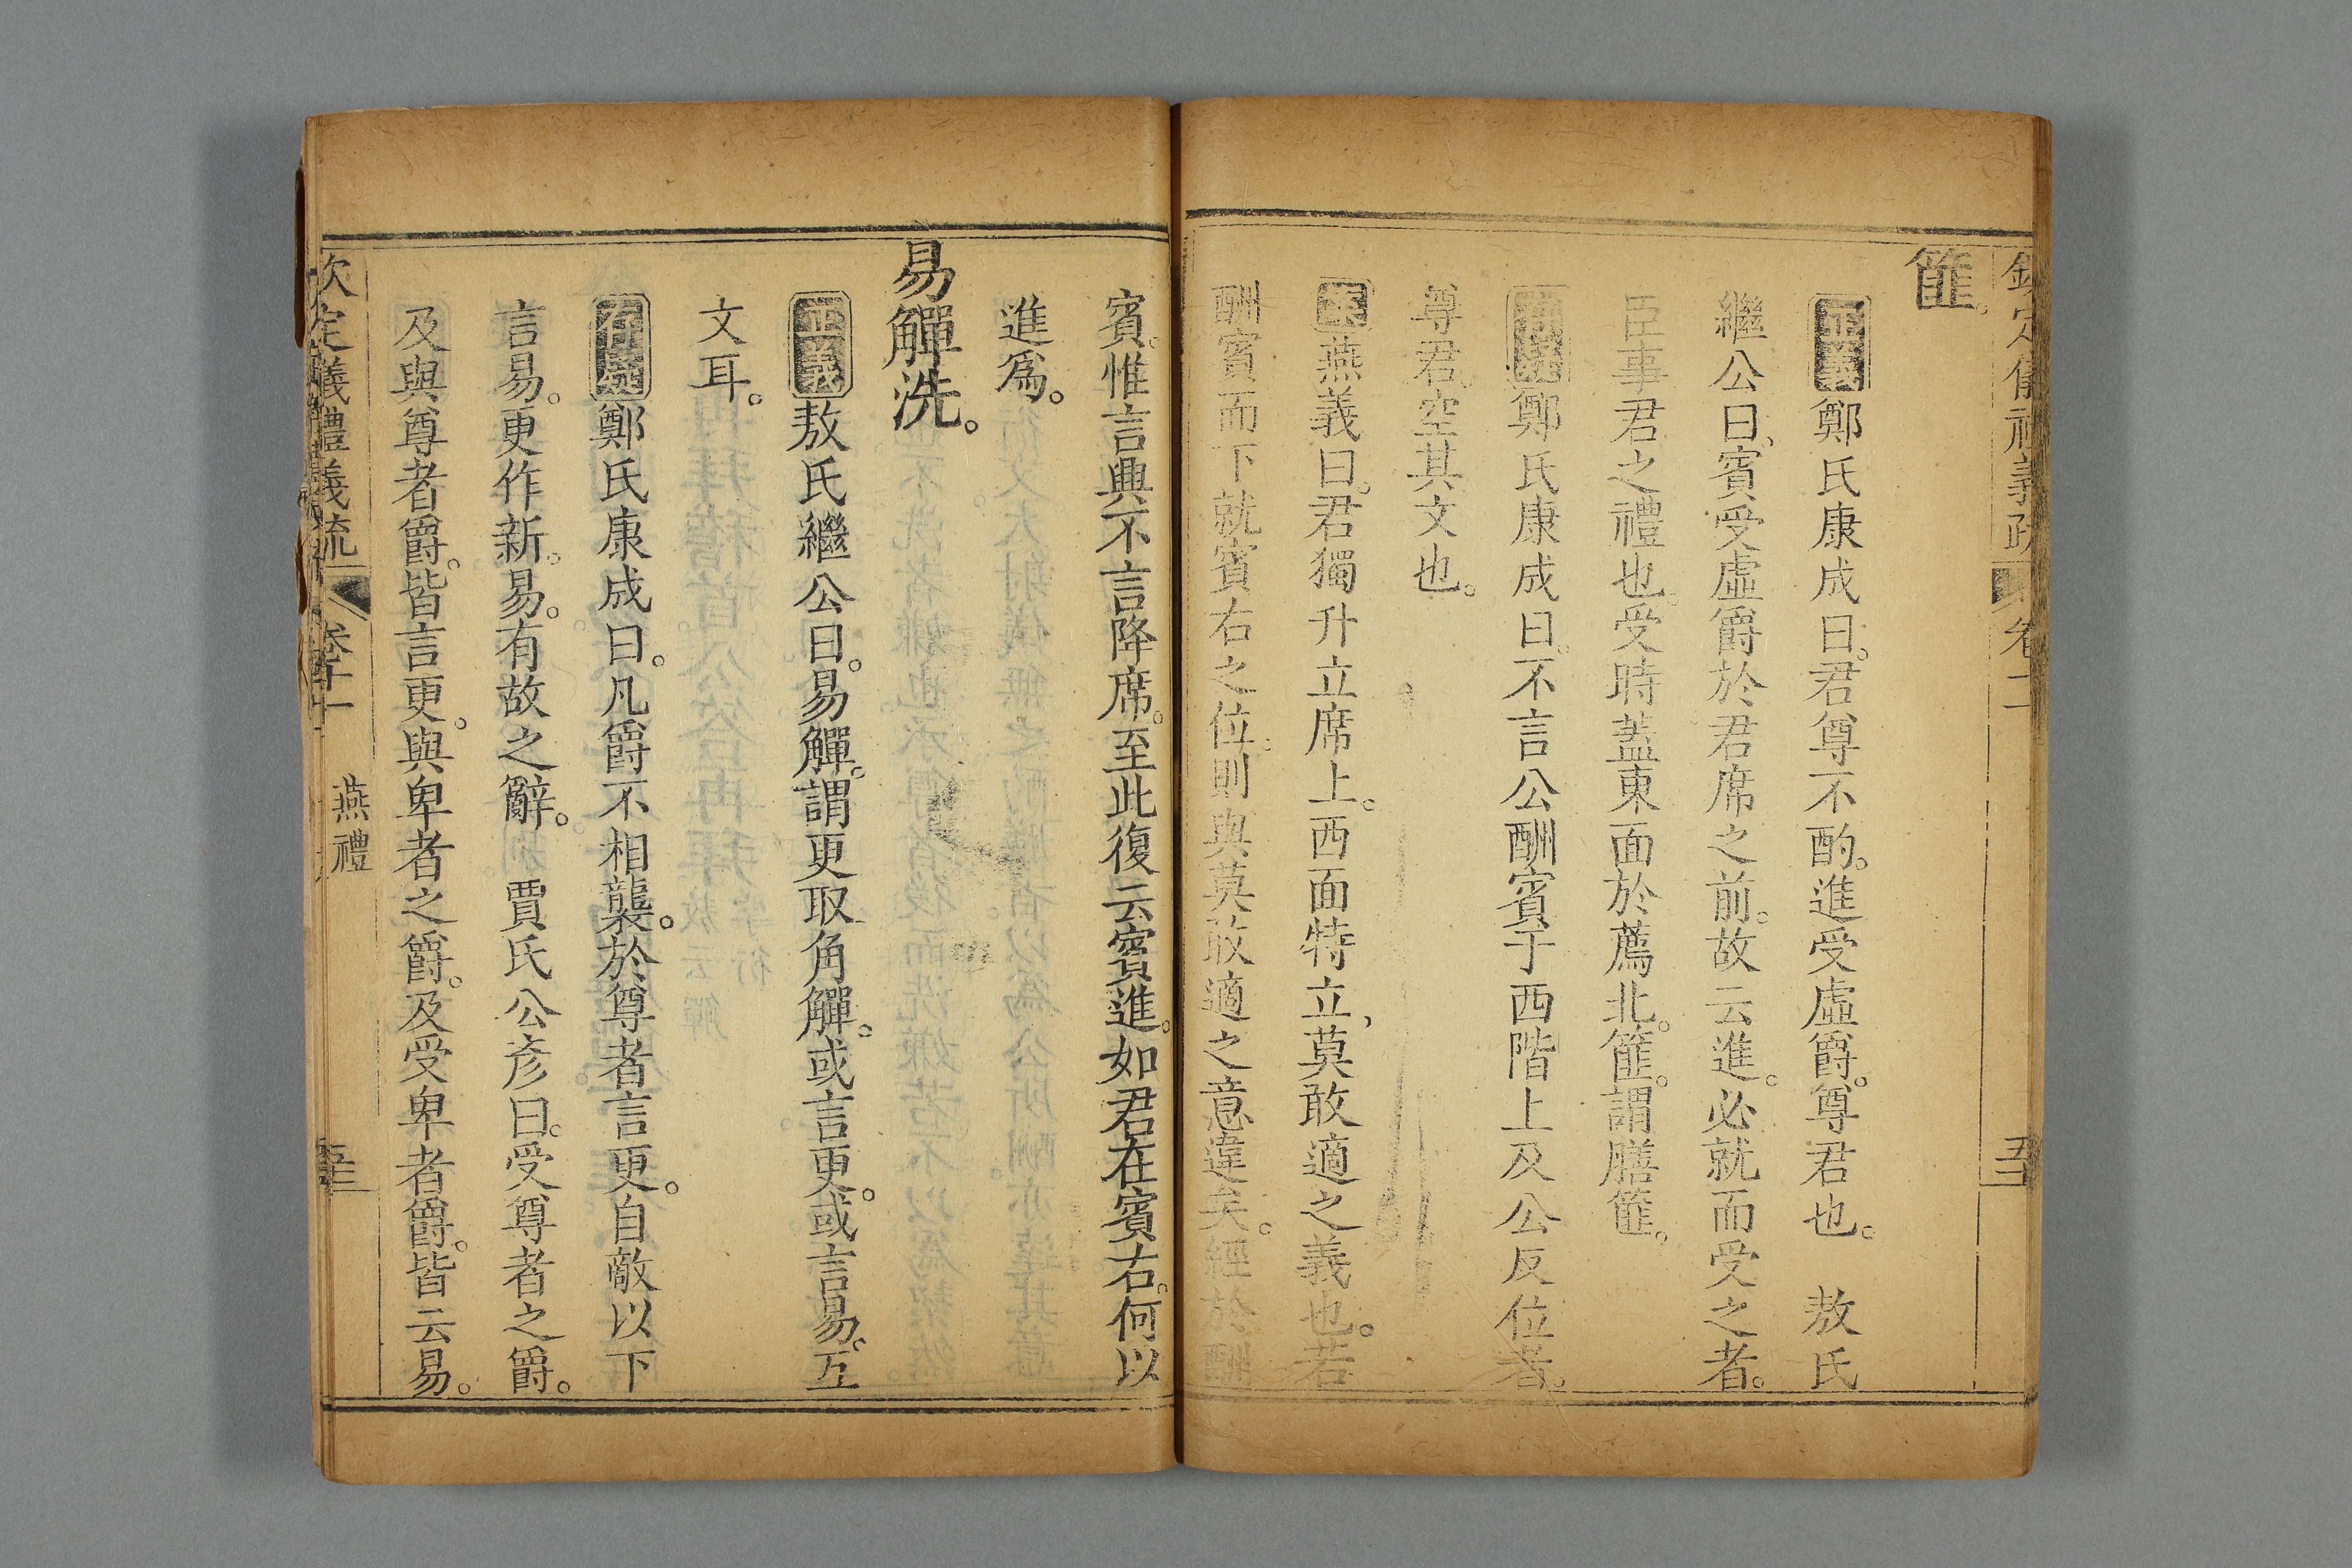 篚。
正義鄭氏康成曰。君尊不酌。進受虛爵。尊君也。 敖氏
繼公曰、賓受虛爵於君席之前。故云進。必就而受之者。
臣事君之禮也。受時蓋東面於薦北。篚。謂膳篚。
鄭氏康成曰。不言公酬賓于西階上及公反位者。
尊君。空其文也。
案燕義曰。君獨升立席上。西面特立、莫敢適之義也。若
酬賓而下就賓右之位。則與莫敢適之意違矣。經於酬
賓。惟言興不言降席。至此復云賓進。如君在賓右。何以
進爲。
易觶洗。
正義敖氏繼公曰。易觶。謂更取角觶。或言更。或言易。互
文耳。
存疑鄭氏康成曰。凡爵不相襲。於尊者言更。自敵以下
言易。更作新。易。有故之辭。 賈氏公彥曰。受尊者之爵。
及與尊者爵。皆言更。與卑者之爵。及受卑者爵。皆云易。
欽定儀禮義疏 卷十一 燕禮